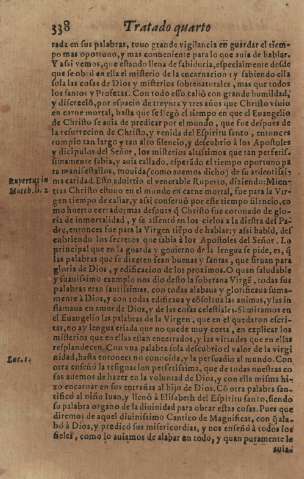 338 Tratado quarto
rada en sus palabras, tuuo grande vigilancia en guardar el tiempo mas oportuno, y mas conueniente para lo que auia de hablar.
Y assi vemos, que estando llena de sabiduria, especialmente desde
que se obrò en ella el misterio de la encarnacion; y sabiendo ella
sola las cosas de Dios y misterios sobrenaturales, mas que todos
los santos y Profetas. Con todo esso callò con grande humildad,
y discreciõ, por espacio de treynta y tres años que Christo viuio
en carne mortal, hasta que se llegò el tiempo en que el Euangelio
de Christo se auia de predicar por el mundo, que fue despues de
la resurreccion de Christo, y venida del Espiritu santo, entonces
rompio tan largo y tan alto silencio, y descubrio à los Apostoles
y dicipulos del Señor, los misterios altissimos que tan perfectissimamente sabia, y auia callado, esperãdo el tiempo oportuno pa
ra manifestallos, mouida (como auemos dicho) de su ardentissima caridad. Esto aduirtio el venerable Ruperto, diziendo: Mien
Ruperius in
Matth. li. 2
tras Christo estuuo en el mundo en carne mortal, fue para la Virgen tiempo de callar, y assi conseruò por este tiempo silencio, co
mo huerto cerrado; mas despues q̃ Christo fue coronado de gloria de inmortalidad, y se assentò en los cielos à la diestra del Padre, entonces fue para la Virgen tiẽpo de hablar; y assi hablò, des
cubriendo los secretos que sabia à los Apostoles del Señor. Lo
principal que en la guarda y gouierno de la lengua se pide, es, q̃
las palabras que se dixeren sean buenas y santas, que siruan para
gloria de Dios, y edificacion de los proximos. O quan saludable
y suauissimo exemplo nos dio desto la soberana Virgẽ, todas sus
palabras eran santissimas, con todas alabaua y glorificaua sumamente à Dios, y con todas edificaua y
en amor de Dios, y de las cosas celestiales. Si miramos en
el Euangelio las palabras de la Virgen, que en el quedaron escritas, no ay lengua criada que no quede muy corta, en explicar los
misterios que en ellas estan encerrados, y las virtudes que en ellas
resplandecen. Con vna palabra sola descubrio el valor de la virgi
Luc. 1.
nidad, hasta entonces no conocida, y la persuadio al mundo. Con
otra enseñò la resignacion perfetissima, que de todas nuestras cosas auemos de hazer en la voluntad de Dios, y con ella misma hizo encarnar en sus entrañas al hijo de Dios. Cõ otra palabra santificò al niño Iuan, y llenò à Elisabeth del Espiritu santo, siendo
su palabra organo de la diuinidad para obrar estas cosas. Pues que
diremos de aquel diuinissimo Cantico de Magnificat, con q̃ alabò à Dios, y predicò sus misericordias, y nos enseñò à todos los
fieles, como lo auiamos de alabar en todo, y quan puramente le
auia-